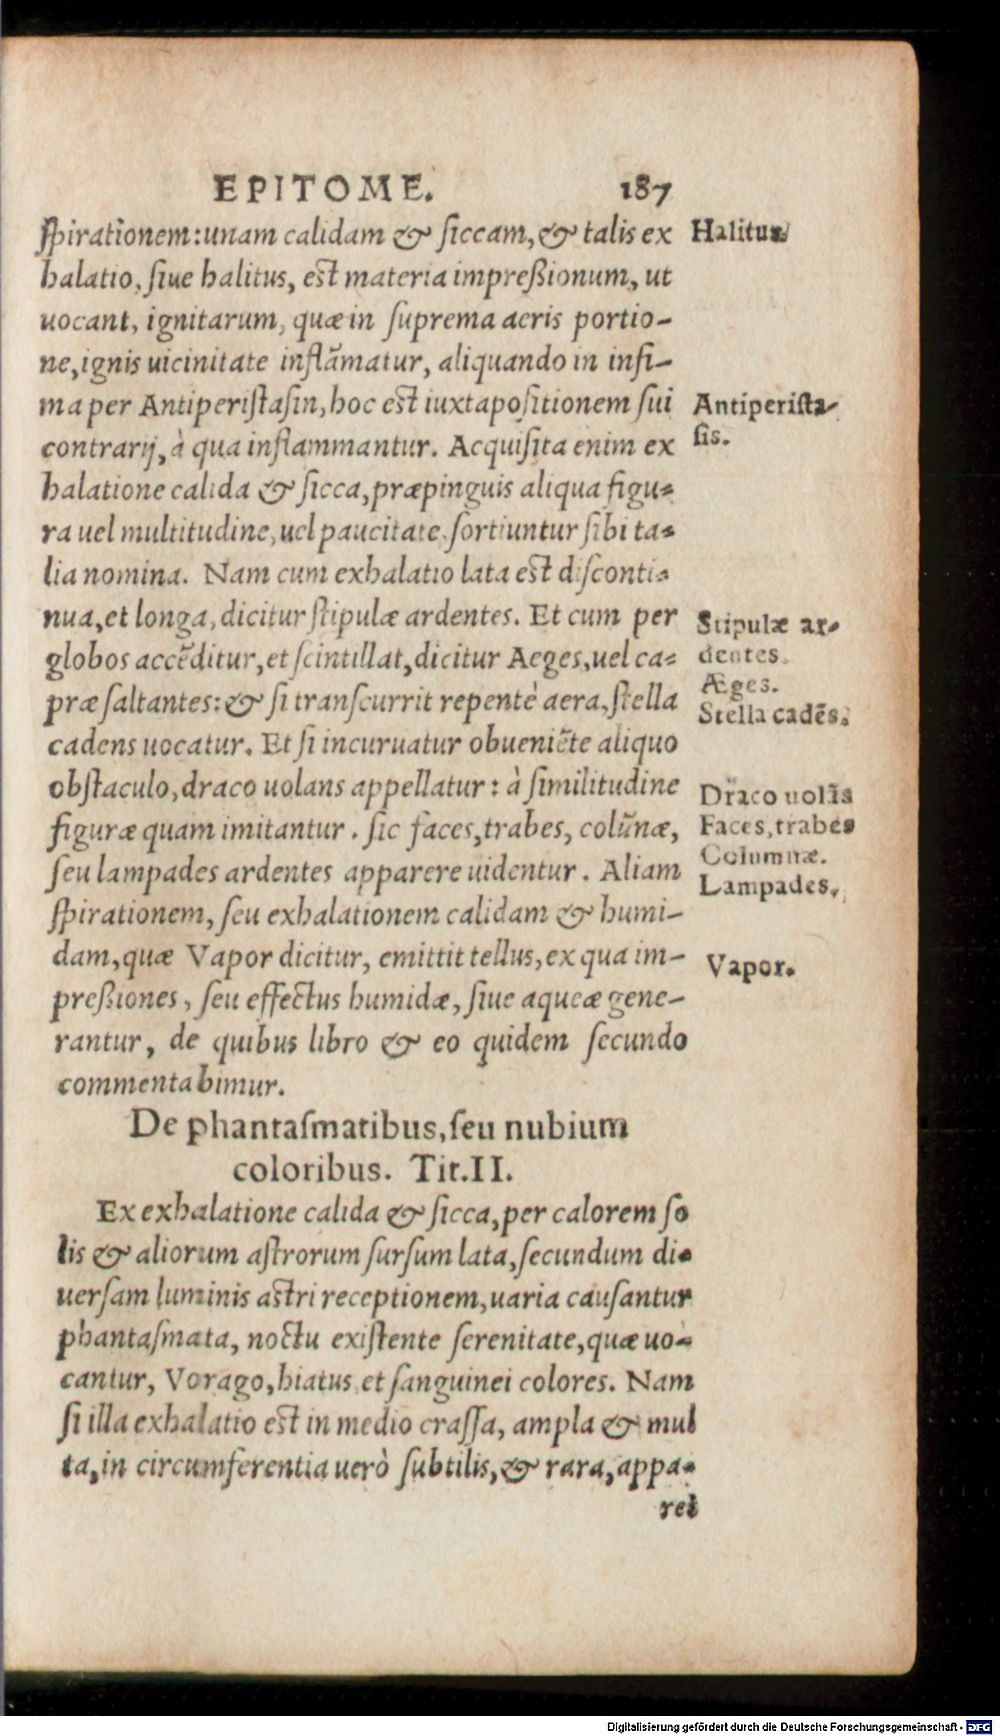 EPITOME. 187
ſpirationem: unam calidam & ſiccam, & talis ex
halatio, ſiue halitus, est materia impreßionum, ut
uocant, ignitarum, quæ in ſuprema aeris portio-
ne, ignis uicinitate inflãmatur, aliquando in infi-
ma per Antiperiſtaſin, hoc est iuxtapoſitionem ſui
contrarij, à qua inflammantur. Acquiſita enim ex
halatione calida & ſicca, præpinguis aliqua figu-
ra uel multitudine, uel paucitate, ſortiuntur ſibi ta-
lia nomina. Nam cum exhalatio lata est diſconti-
nua, et longa, dicitur ſtipulæ ardentes. Et cum per
globos accẽditur, et ſcintillat, dicitur Aeges, uel ca-
præ ſaltantes: & ſi tranſcurrit repentè aera, ſtella
cadens uocatur. Et ſi incuruatur obueniẽte aliquo
obſtaculo, draco uolans appellatur: à ſimilitudine
figuræ quam imitantur. ſic faces, trabes, colũnæ,
ſeu lampades ardentes apparere uidentur. Aliam
ſpirationem, ſeu exhalationem calidam & humi-
dam, quæ Vapor dicitur, emittit tellus, ex qua im-
preßiones, ſeu effectus humidæ, ſiue aqueæ gene-
rantur, de quibus libro & eo quidem ſecundo
commentabimur.
De phantaſmatibus, ſeu nubium
coloribus. Tit. II.
Ex exhalatione calida & ſicca, per calorem ſo
lis & aliorum aſtrorum ſurſum lata, ſecundum di-
uerſam luminis astri receptionem, uaria cauſantur
phantaſmata, noctu exiſtente ſerenitate, quæ uo-
cantur, Vorago, hiatus et ſanguinei colores. Nam
ſi illa exhalatio est in medio craſſa, ampla & mul
ta, in circumferentia uerò ſubtilis, & rara, appa-
ret
Halitus
Antiperiſta-
ſis.
Stipulæ ar-
dentes.
Æges.
Stella cadẽs.
Draco uolãs
Faces, trabes
Columnæ.
Lampades.
Vapor.
Digitalisierung gefördert durch die Deutsche Forschungsgemeinschaft - DFG